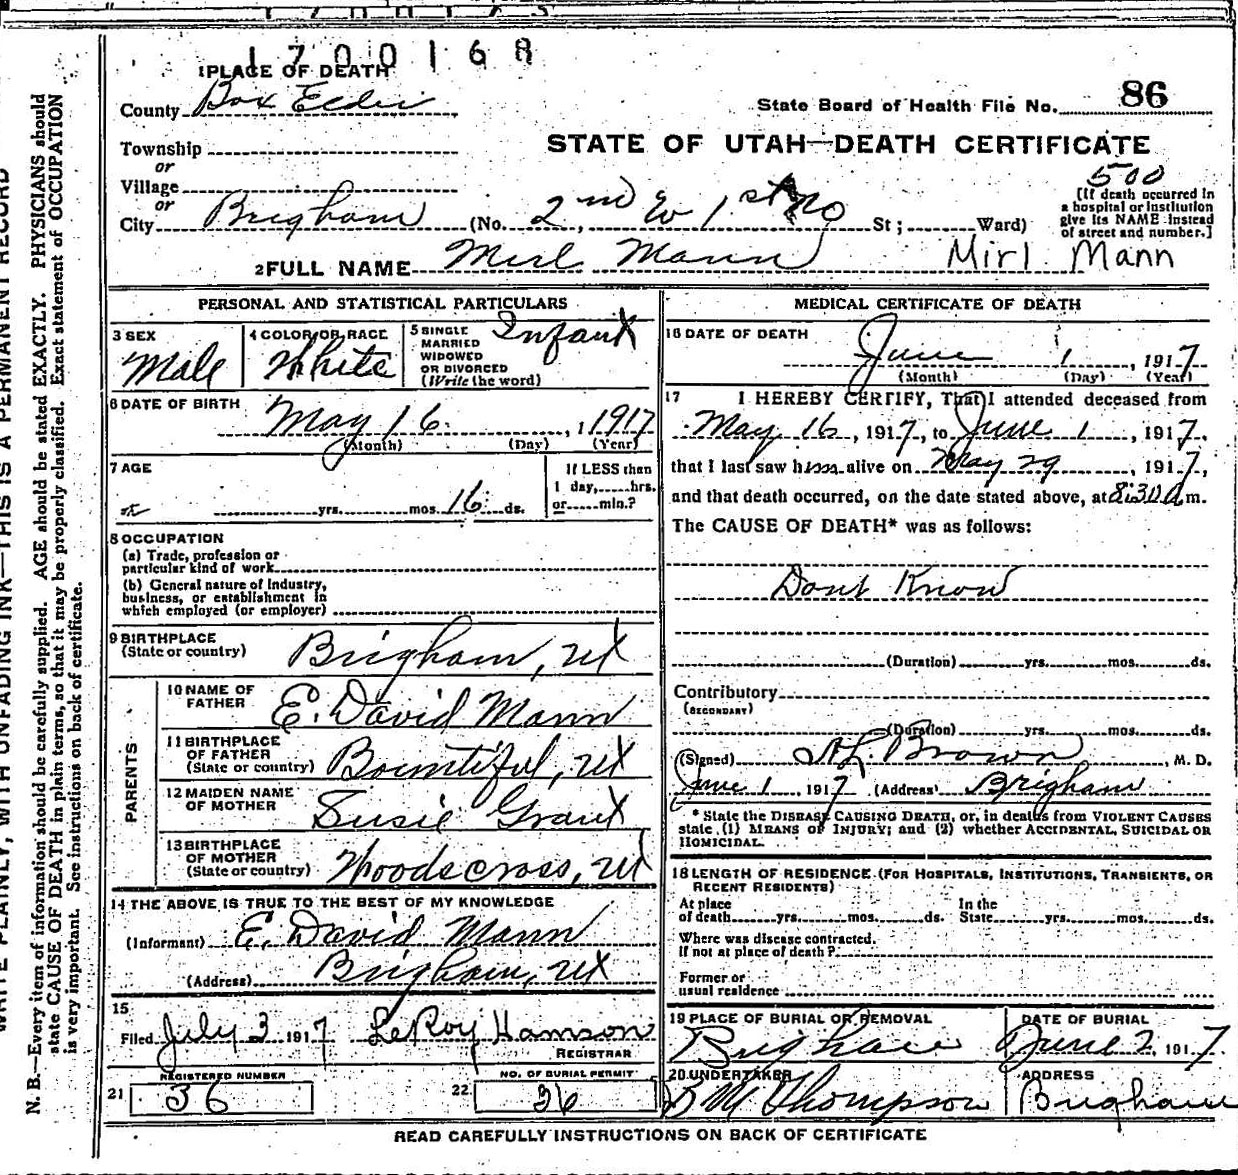 1700168
1 PLACE OF DEATH
County Box Elder
State Board of Health File No. 86
STATE OF UTAH—DEATH CERTIFICATE
Township
or
Village
or
City Brigham (No. 2nd W 1st No St; Ward)
500
[If death occurred in
a hospital or institution
give its NAME instead
of street and number.]
2 FULL NAME Mirl Mann Mirl Mann
PERSONAL AND STATISTICAL PARTICULARS
3 SEX
Male
4 COLOR OR RACE
White
5 SINGLE
MARRIED
WIDOWED
OR DIVORCED
(Write the word)
Infant
6 DATE OF BIRTH
May 16 1917
(Month) (Day) (Year)
7 AGE
yrs. mos. 16 ds.
If LESS than
1 day, hrs.
or min.?
8 OCCUPATION
(a) Trade, profession or
particular kind of work
(b) General nature of Industry,
business, or establishment in
which employed (or employer)
9 BIRTHPLACE
(State or country)
Brigham, Ut
PARENTS
10 NAME OF
FATHER
E. David Mann
11 BIRTHPLACE
OF FATHER
(State or country)
Bountiful, Ut
12 MAIDEN NAME
OF MOTHER
Susie Grant
13 BIRTHPLACE
OF MOTHER
(State or country)
Woodscross, Ut
14 THE ABOVE IS TRUE TO THE BEST OF MY KNOWLEDGE
(Informant) E. David Mann
(Address) Brigham, Ut
15
Filed July 3 1917 LeRoy Hamson
REGISTRAR
21 REGISTERED NUMBER
36
22 NO. OF BURIAL PERMIT
36
MEDICAL CERTIFICATE OF DEATH
16 DATE OF DEATH
June 1, 1917
(Month) (Day) (Year)
17 I HEREBY CERTIFY, That I attended deceased from
May 16, 1917, to June 1, 1917,
that I last saw him alive on May 29, 1917,
and that death occurred, on the date stated above, at 8:30 a m.
The CAUSE OF DEATH* was as follows:
Dont Know
(Duration) yrs. mos. ds.
Contributory
(SECONDARY)
(Duration) yrs. mos. ds.
(Signed) A L. Brown, M. D.
June 1, 1917 (Address) Brigham
* State the DISEASE CAUSING DEATH, or, in deaths from VIOLENT CAUSES
state (1) MEANS OF INJURY; and (2) whether ACCIDENTAL, SUICIDAL OR
HOMICIDAL.
18 LENGTH OF RESIDENCE (FOR HOSPITALS, INSTITUTIONS, TRANSIENTS, OR
RECENT RESIDENTS)
At place
of death yrs. mos. ds.
In the
State yrs. mos. ds.
Where was disease contracted,
if not at place of death?
Former or
usual residence
19 PLACE OF BURIAL OR REMOVAL
Brigham
DATE OF BURIAL
June 2, 1917
20 UNDERTAKER
B M Thompson
ADDRESS
Brigham
READ CAREFULLY INSTRUCTIONS ON BACK OF CERTIFICATE
WRITE PLAINLY, WITH UNFADING INK—THIS IS A PERMANENT RECORD
N. B.—Every item of information should be carefully supplied. AGE should be stated EXACTLY. PHYSICIANS should
state CAUSE OF DEATH in plain terms, so that it may be properly classified. Exact statement of OCCUPATION
is very important. See instructions on back of certificate.